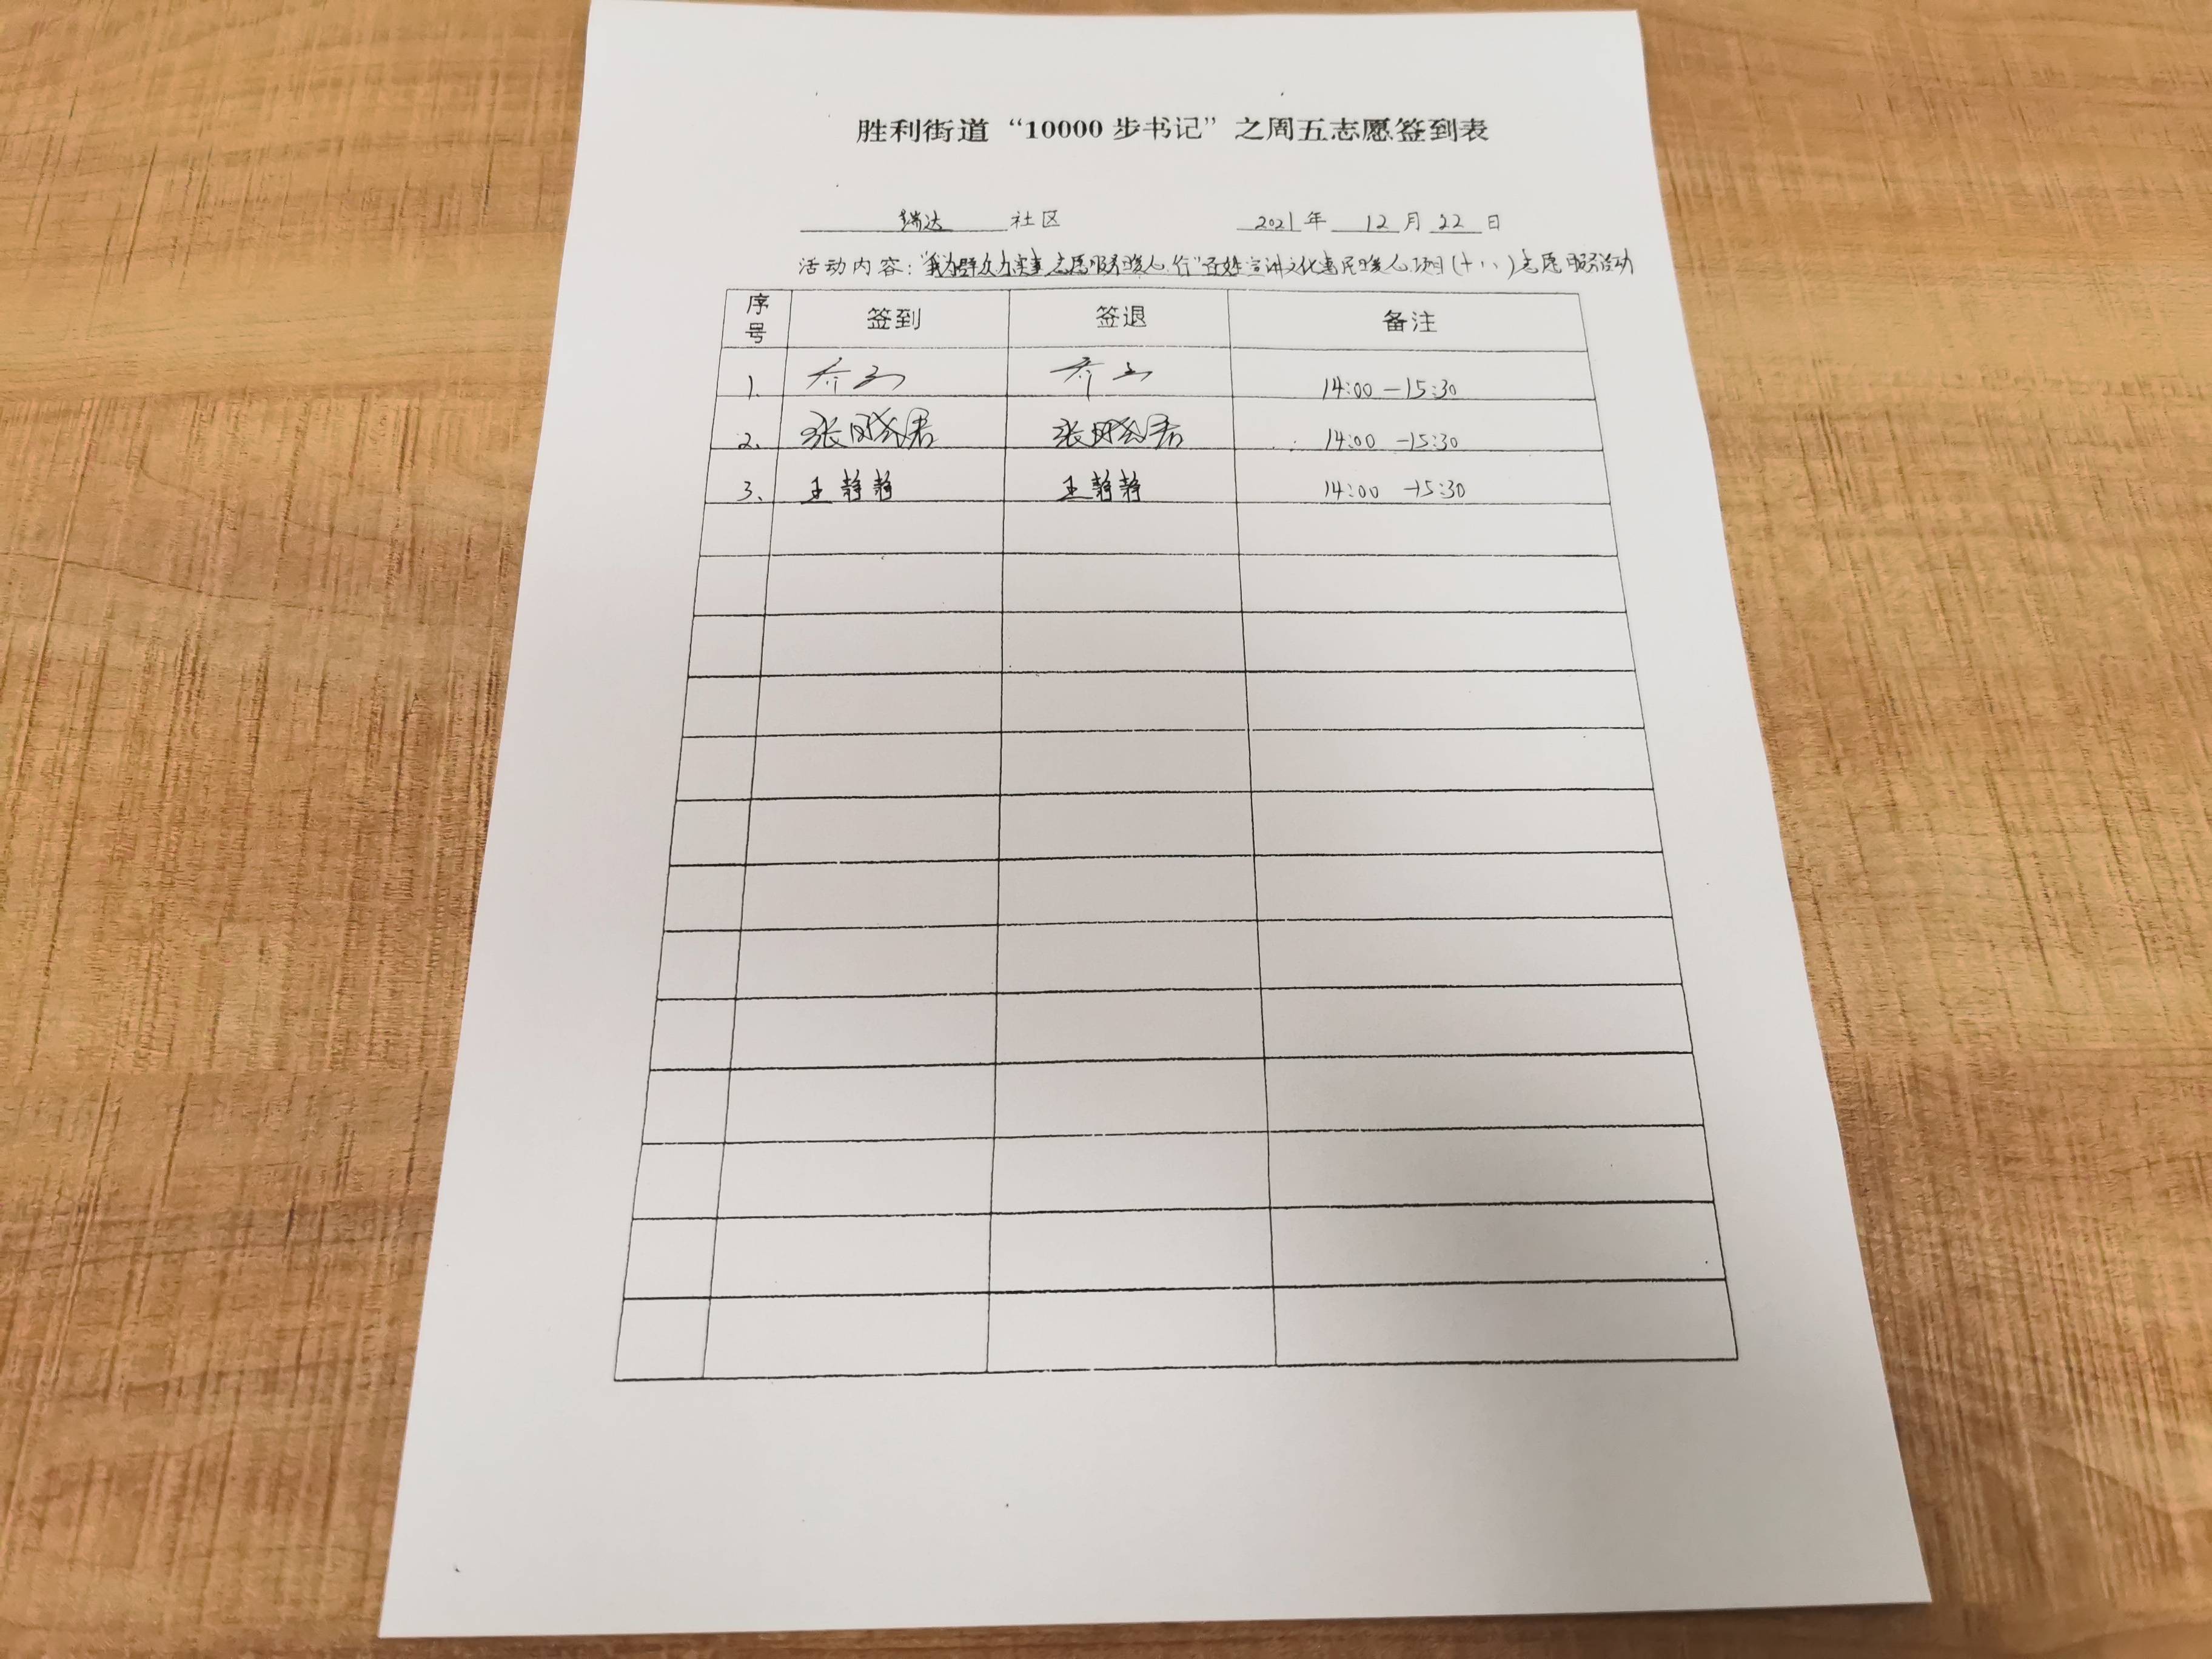 胜利街道“10000步书记”之周五志愿签到表
瑞达社区 2021年12月22日
活动内容：“我为群众办实事 志愿服务暖人心行”百姓宣讲文化惠民暖人心项目(十八)志愿服务活动
序号 签到 签退 备注
1. 14:00-15:30
2. 张晓君 张晓君 14:00-15:30
3. 王静静 王静静 14:00-15:30